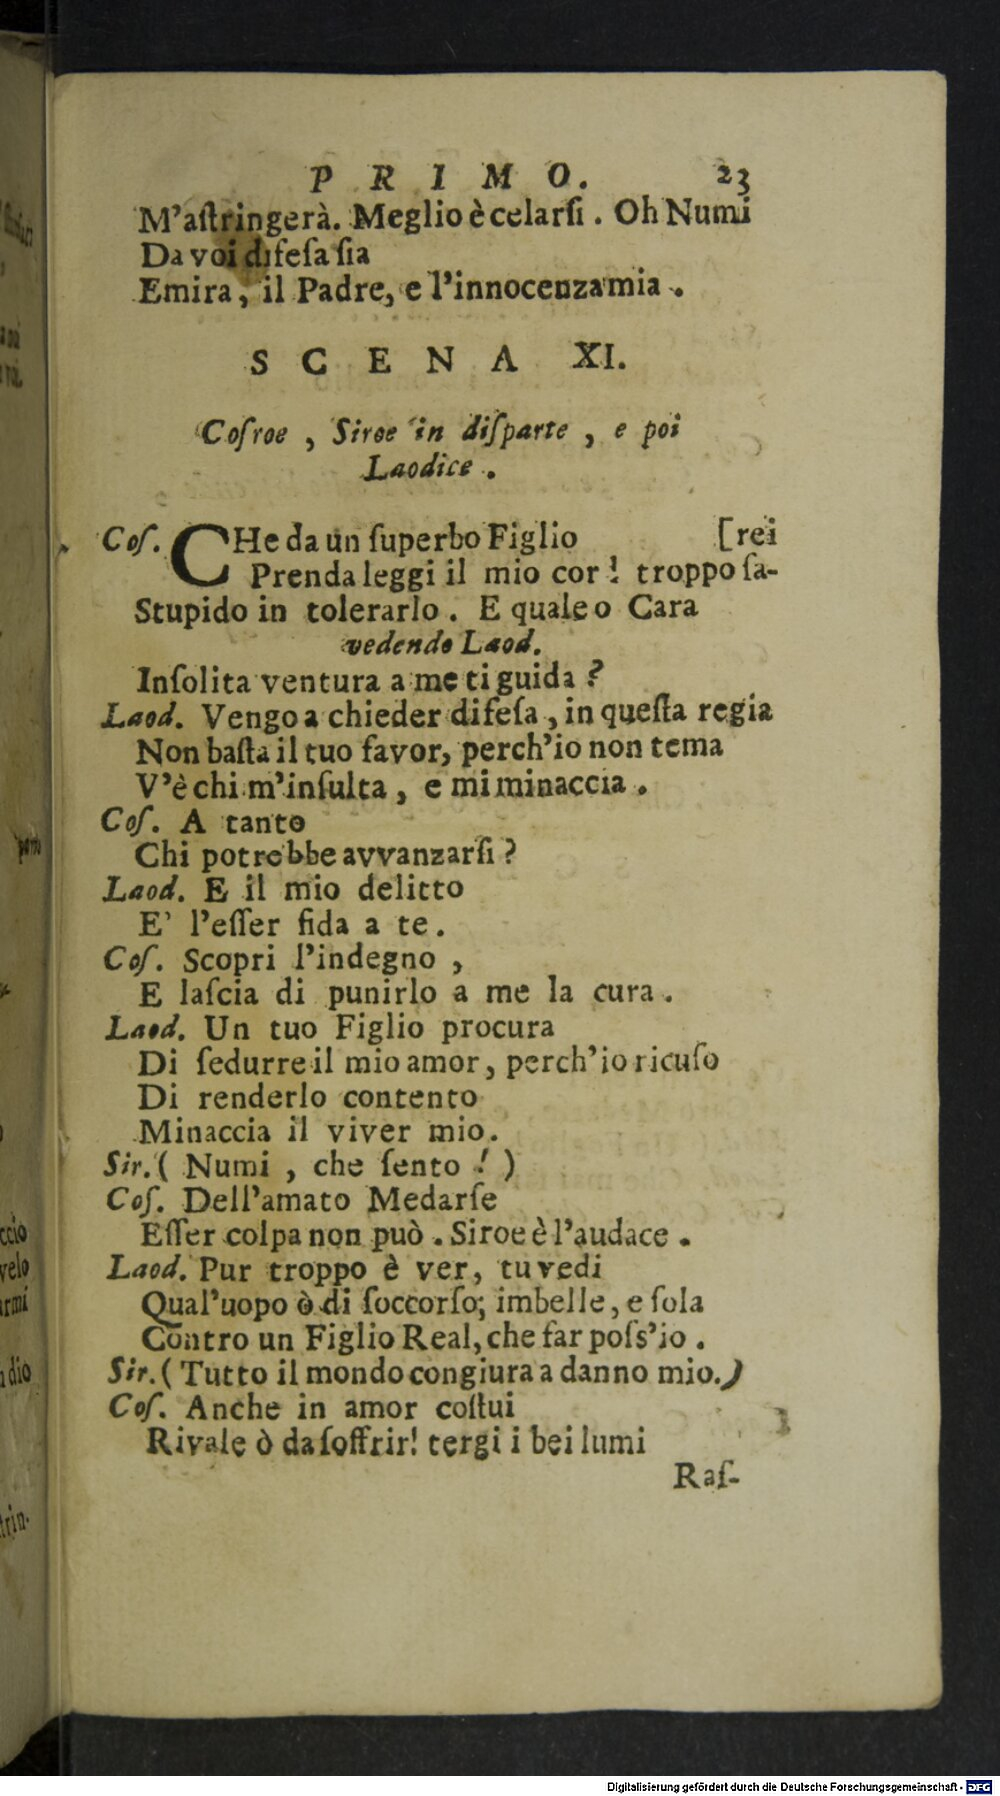 PRIMO. 23
M'aſtringerà. Meglio è celarſi. Oh Numi
Da voi difeſa ſia
Emira, il Padre, e l'innocenza mia.
SCENA XI.
Coſroe, Siroe in diſparte, e poi
Laodice.
Coſ. CHe da un ſuperbo Figlio [rei
Prenda leggi il mio cor! troppo ſa-
Stupido in tolerarlo. E quale o Cara
vedendo Laod.
Inſolita ventura a me ti guida?
Laod. Vengo a chieder difeſa, in queſta regia
Non baſta il tuo favor, perch'io non tema
V'è chi m'inſulta, e mi minaccia.
Coſ. A tanto
Chi potrebbe avvanzarſi?
Laod. E il mio delitto
E' l'eſſer fida a te.
Coſ. Scopri l'indegno,
E laſcia di punirlo a me la cura.
Laod. Un tuo Figlio procura
Di ſedurre il mio amor, perch'io ricuſo
Di renderlo contento
Minaccia il viver mio.
Sir. (Numi, che ſento!)
Coſ. Dell'amato Medarſe
Eſſer colpa non può. Siroe è l'audace.
Laod. Pur troppo è ver, tu vedi
Qual'uopo ò di ſoccorſo; imbelle, e ſola
Contro un Figlio Real, che far poſs'io.
Sir. (Tutto il mondo congiura a danno mio.)
Coſ. Anche in amor coſtui
Rivale ò da ſoffrir! tergi i bei lumi
Raſ-
Digitalisierung gefördert durch die Deutsche Forschungsgemeinschaft - DFG